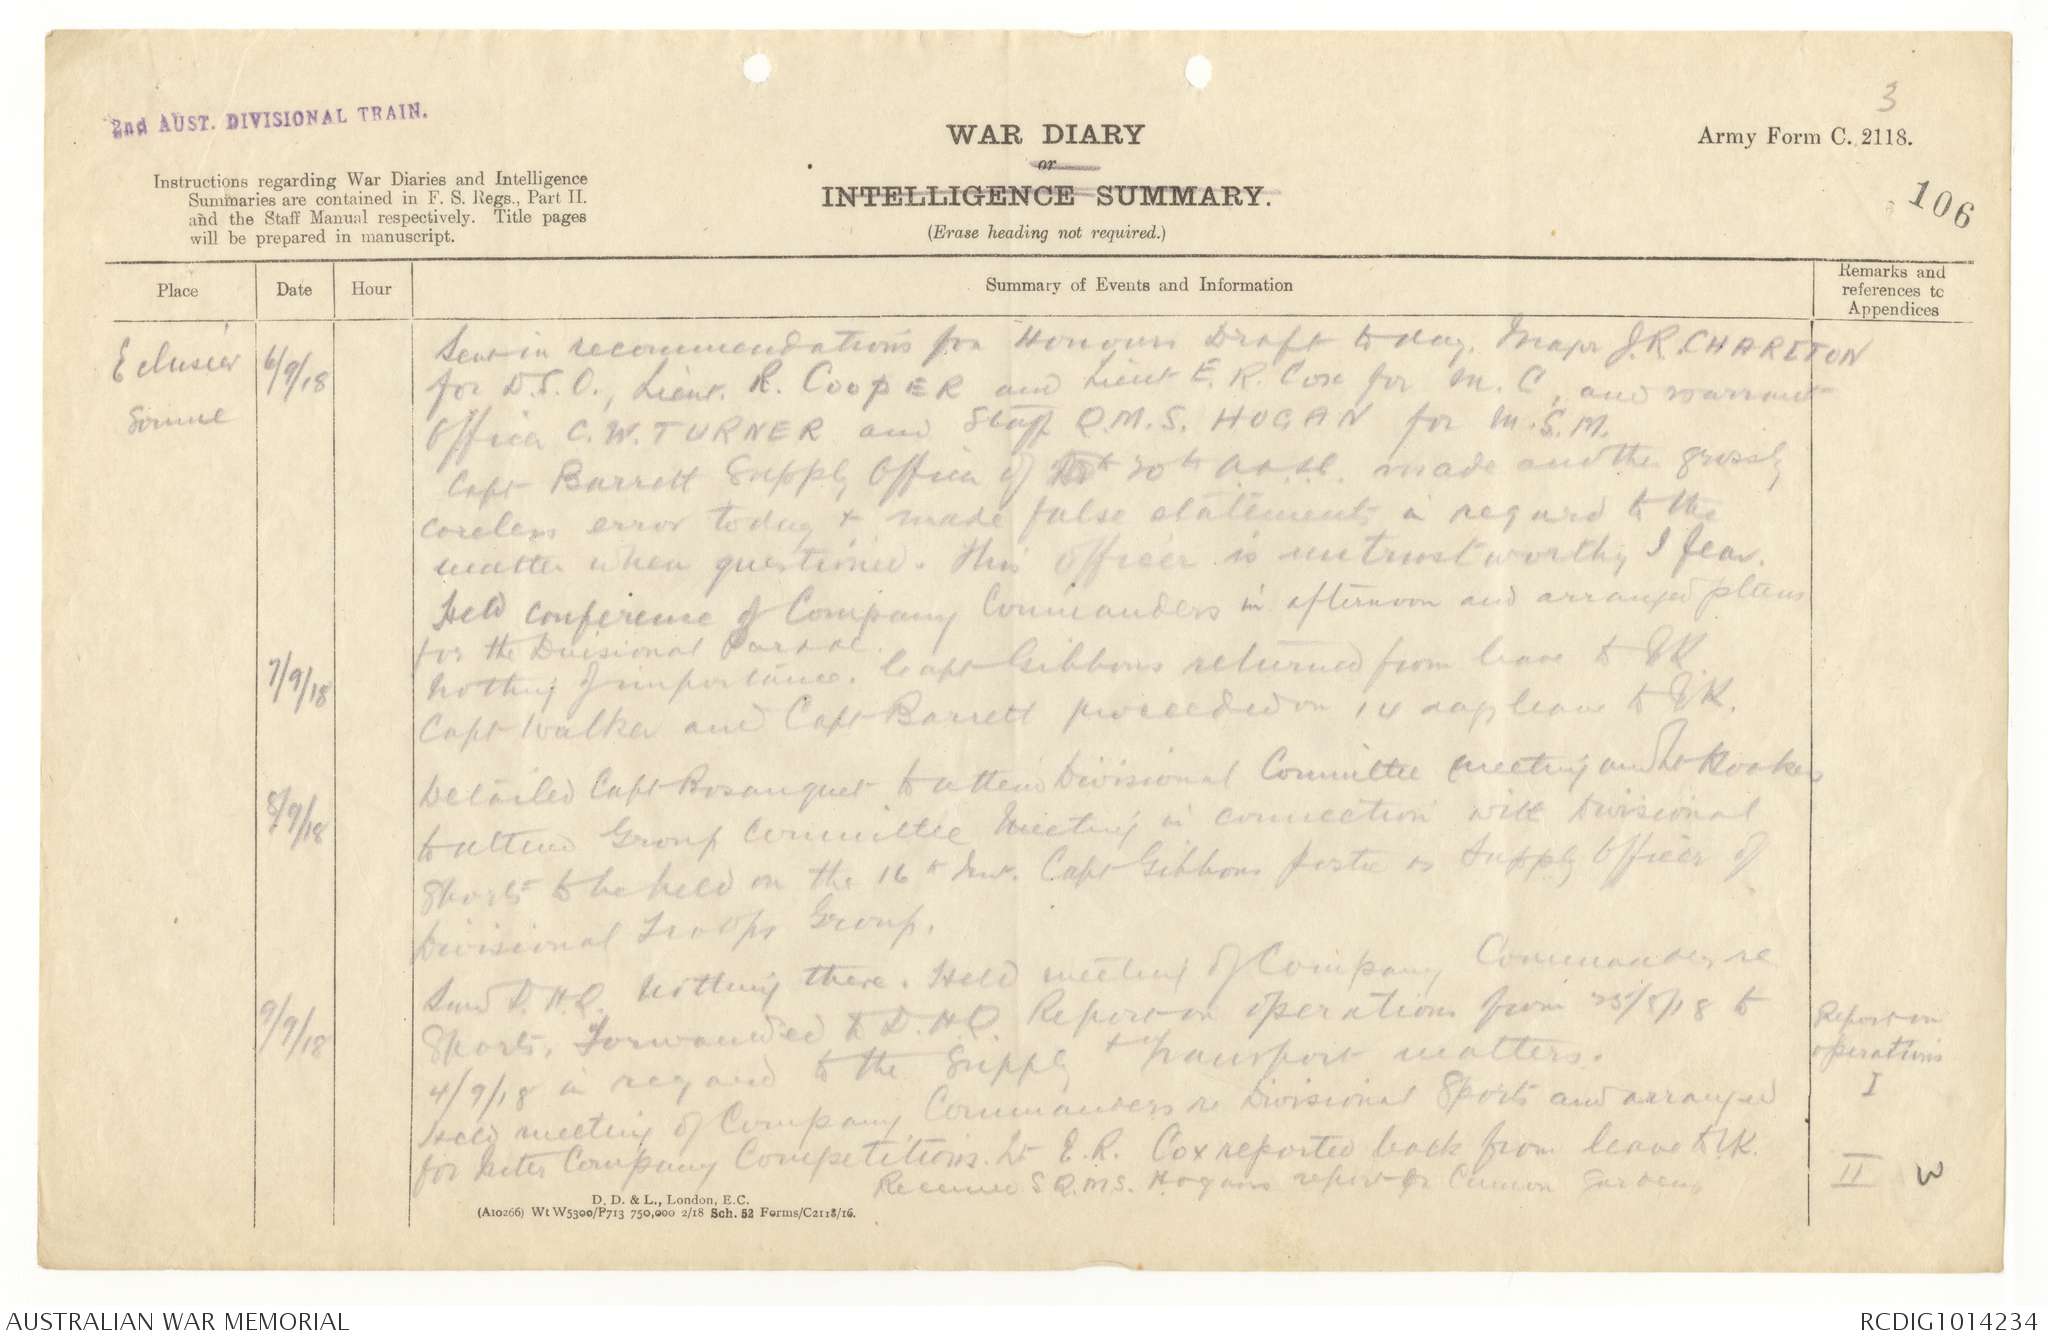 3
2nd AUST. DIVISIONAL TRAIN.
WAR DIARY
or
INTELLIGENCE SUMMARY.
(Erase heading not required.)
Army Form C. 2118.
106
Instructions regarding War Diaries and Intelligence
Summaries are contained in F. S. Regs., Part II.
and the Staff Manual respectively. Title pages
will be prepared in manuscript.
Place
Date
Hour
Summary of Events and Information
Remarks and
references to
Appendices
Eclusier
Somme
6/9/18
Sent in recommendations for Honours Draft today. Major J.R. CHARLTON
for D.S.O., Lieut. R. COOPER and Lieut E. R. Cox for M.C, and warrant
Officer C. W. TURNER and Staff Q.M.S. HOGAN for M.S.M.
Capt Barrett Supply Officer of 20th A.A.S.C. made another grossly
careless error today & made false statements in regard to the
matter when questioned. This officer is untrustworthy I fear.
Held conference of Company Commanders in afternoon and arranged plans
for the Divisional
7/9/18
Nothing of importance. Capt Gibbons returned from leave to UK.
Capt Walker and Capt Barrett proceeded on 14 days leave to UK.
8/9/18
Detailed Capt Bosanquet to attend Divisional Committee meeting and Lt Rookes
to attend Group Committee Meeting in connection with Divisional
Sports to be held on the 16th Inst. Capt Gibbons posted as Supply Officer of
Divisional Troops Group.
9/9/18
D.H.Q. Nothing there. Held meeting of Company Commanders re
Sports. Forwarded to D.H.Q. Report on operations from 25/8/18 to
4/9/18 in regard to the Supply & Transport matters.
Held meeting of Company Commanders re Divisional Sports and arranged
for Inter Company Competitions. Lt E.R. Cox reported back from leave to UK.
Received S.Q.M.S. Hogans report on Gardens
Report on
operations
I
II
W
D. D. & L., London, E.C.
(A10266) Wt W5300/P713 750,000 2/18 Sch. 52 Forms/C2118/16.
AUSTRALIAN WAR MEMORIAL
RCDIG1014234